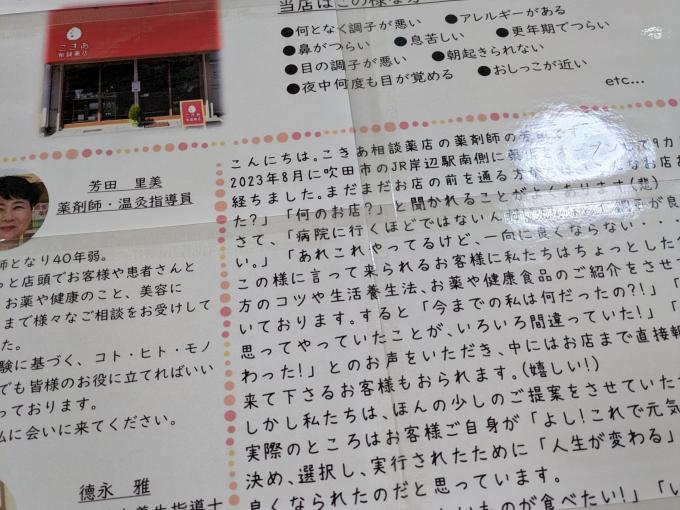 こきあ
相談薬店
こきあ
当店はこの様な方
●何となく調子が悪い
●アレルギーがある
●鼻がつらい
●息苦しい
●更年期でつらい
●目の調子が悪い
●朝起きられない
●夜中何度も目が覚める
●おしっこが近い
etc...
芳田 里美
薬剤師・温灸指導員
師となり40年弱。
っと店頭でお客様や患者さんと
お薬や健康のこと、美容に
まで様々なご相談をお受けして
た。
験に基づく、コト・ヒト・モノ
でも皆様のお役に立てればいい
っております。
ムに会いに来てください。
徳永 雅
養生指導士
こんにちは。こきあ相談薬店の薬剤師の芳田です
2023年8月に吹田市のJR岸辺駅南側に オープンして9カ
経ちました。まだまだお店の前を通る方から なお店
た?」「何のお店?」と聞かれることがよくあります(悲)
さて、「病院に行くほどではないん 調子が良
い。」「あれこれやってるけど、一向に良くならない・・・
この様に言って来られるお客様に私たちはちょっとした
方のコツや生活養生法、お薬や健康食品のご紹介をさせて
いております。すると「今までの私は何だったの?!」「
思ってやっていたことが、いろいろ間違っていた!」「
わった!」とのお声をいただき、中にはお店まで直接報
来て下さるお客様もおられます。(嬉しい!)
しかし私たちは、ほんの少しのご提案をさせていただ
実際のところはお客様ご自身が「よし!これで元気
決め、選択し、実行されたために「人生が変わる」
良くなられたのだと思っています。
いものが食べたい!」「い